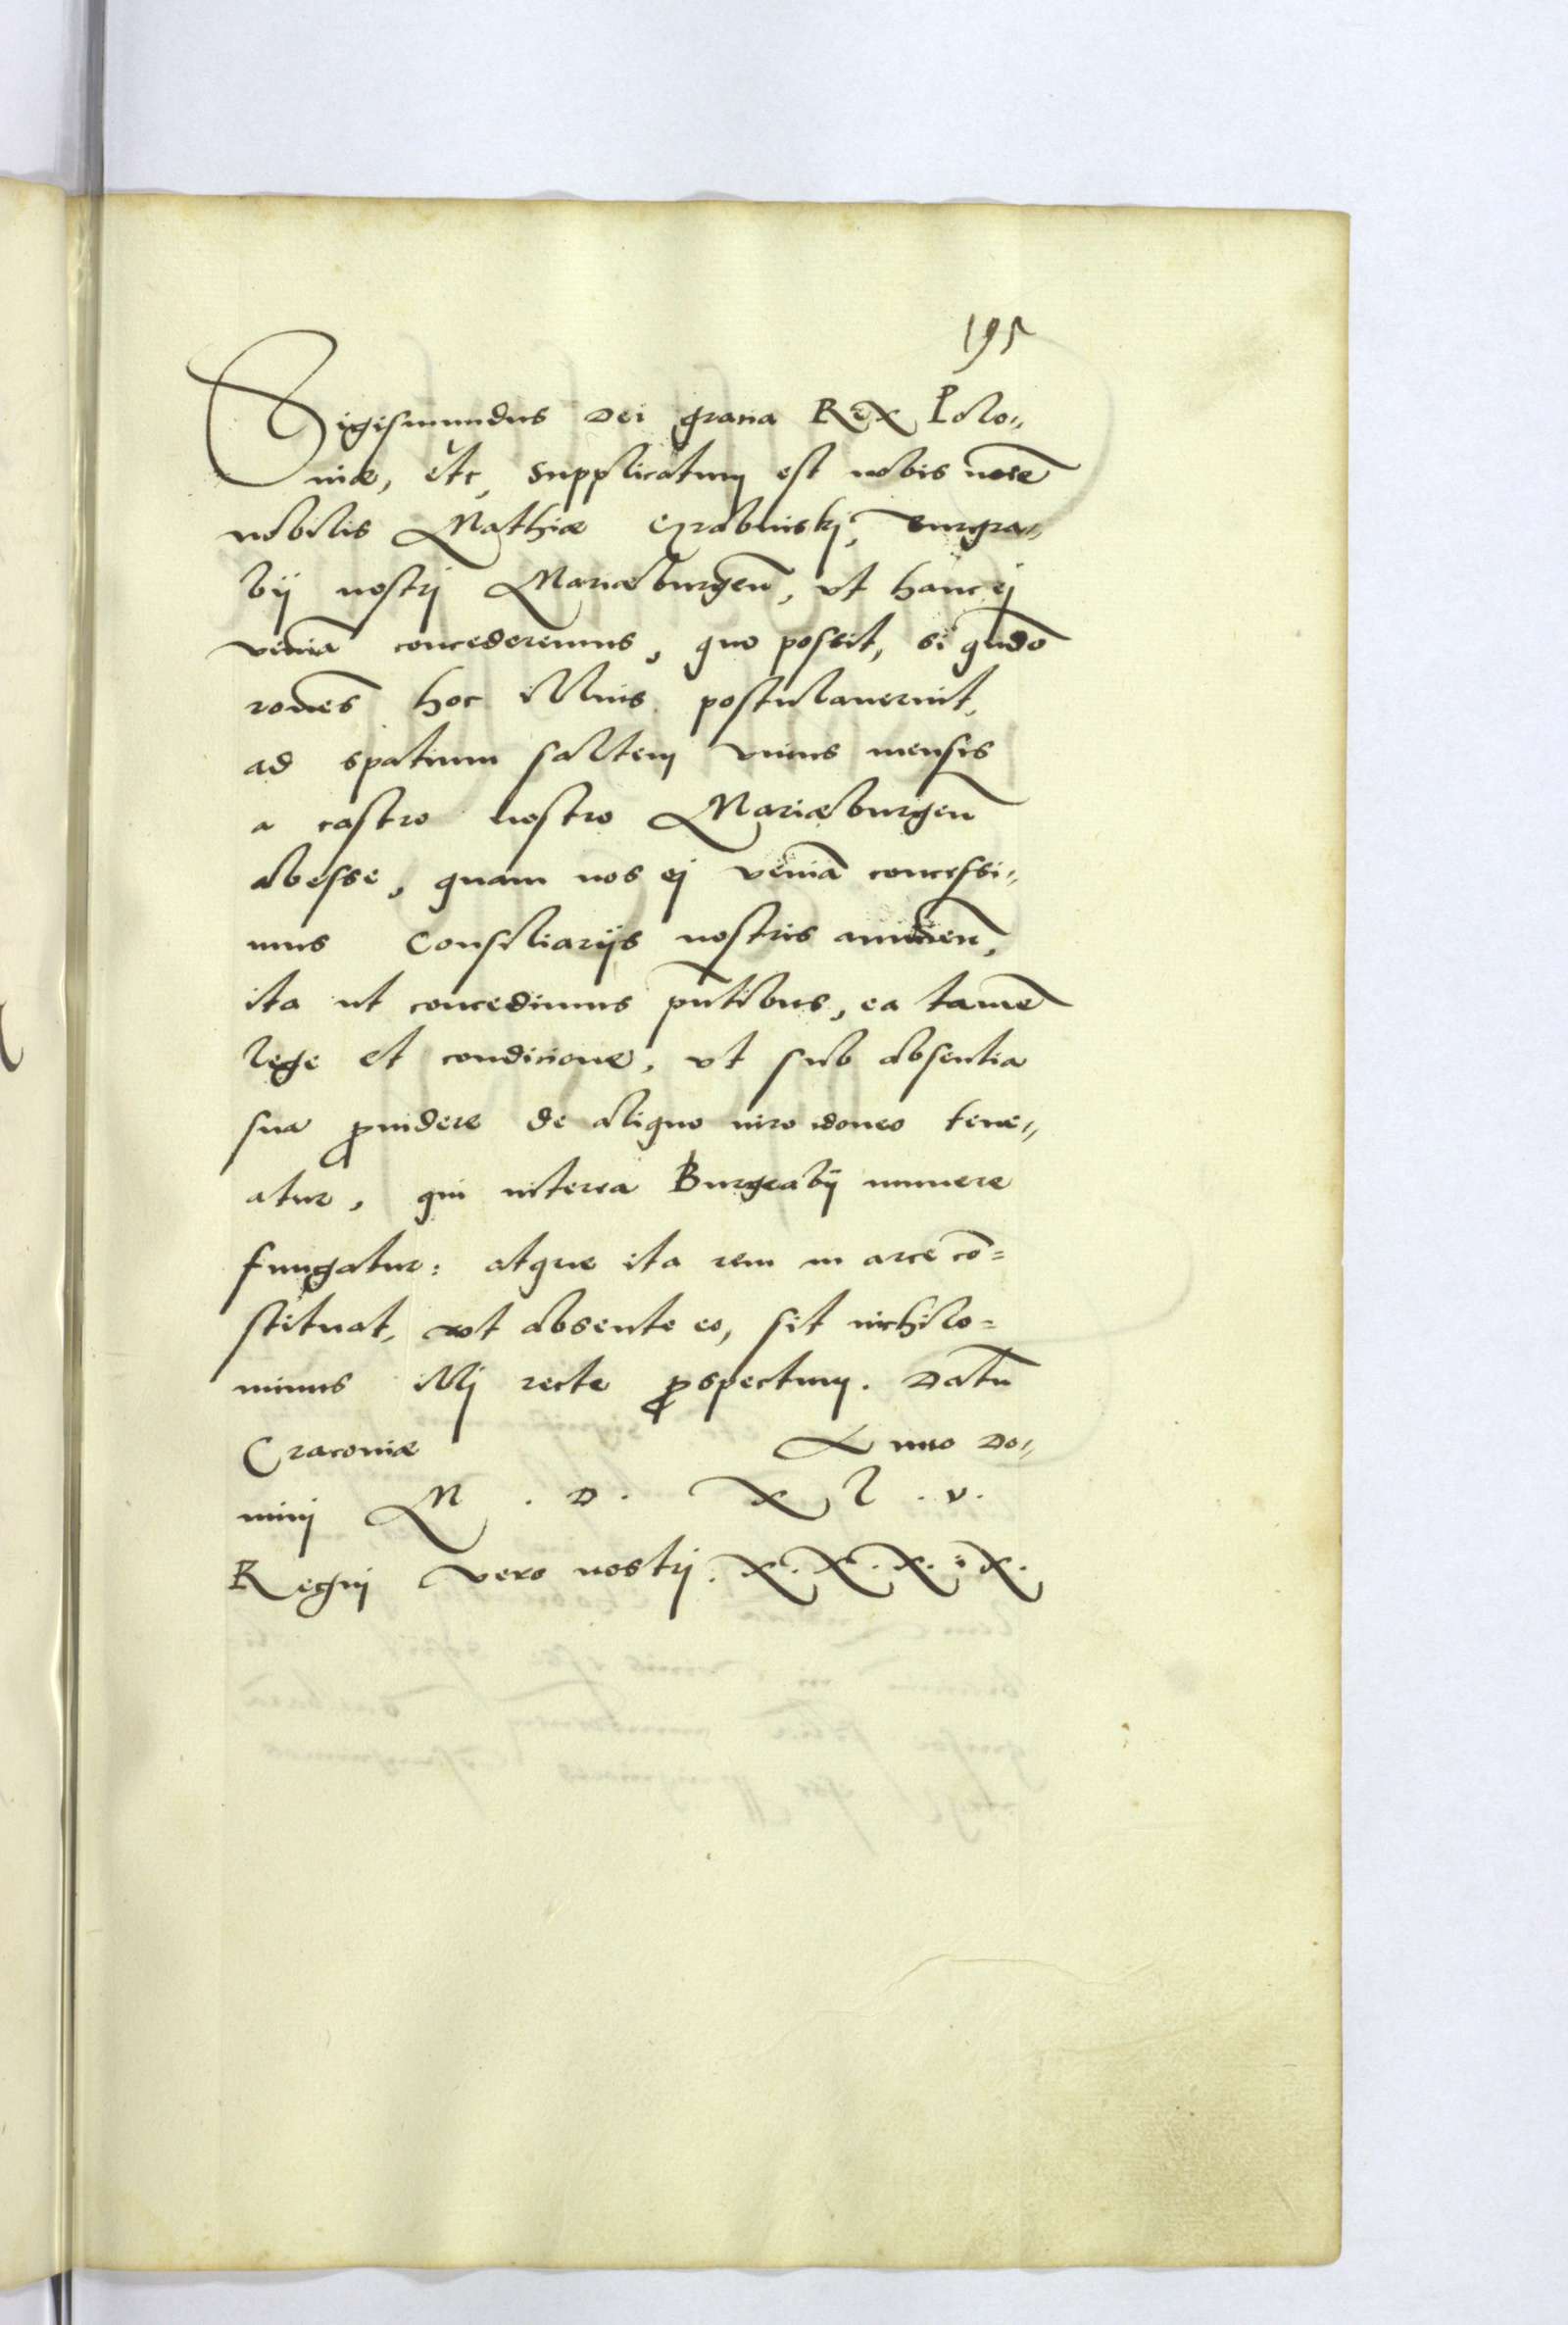 195
Sigismundus Dei gracia Rex Polo„
niæ, etc, Supplicatum est nobis noĩe
nobilis Mathiæ Burgra„
bij nostrj Mariæburgeñ, ut hanc ej
veniã concederemus, quo possit, si qũdo
rones̃ hoc illius postulauerint,
ad spatium saltem vnius mensis
a castro nostro Mariæburgeñ
abesse, quam nos ej veniã concessi„
mus Consiliarijs nostris annuen̄,
ita ut concedimus pñtibus, ea tamẽ
lege et condicione, ut sub absentia
sua ꝓuidere de aliquo uiro idoneo tene„
atur, qui interea Burgrabij munere
fungatur: atque ita rem in arce cõ=
stituat, ut absente eo, sit nichilo=
minus illj recte ꝓspectum. Datũ
Cracoviæ Anno Do„
minj M . D . X L . V.
Regnj vero nostrj . X. X. X. i X.